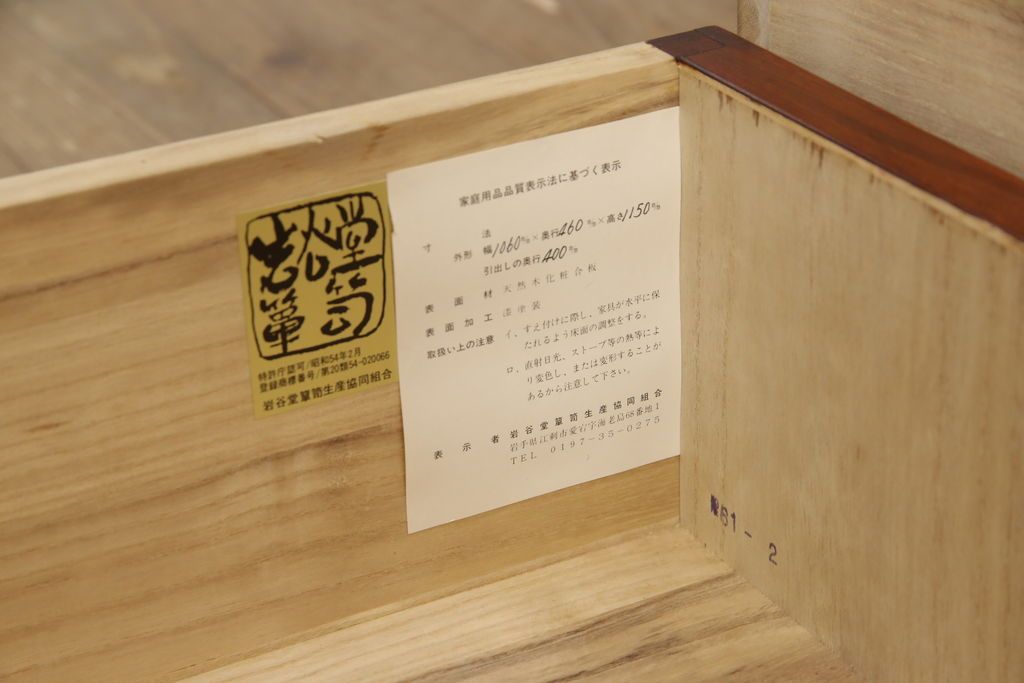 岩谷堂箪笥
特許庁認可/昭和54年2月
登録商標番号/第20類54-020066
岩谷堂箪笥生産協同組合
家庭用品品質表示法に基づく表示
寸法 外形 幅1060m/m×奥行460m/m×高さ1150m/m
引出しの奥行400m/m
表面材 天然木化粧合板
表面加工 漆塗装
取扱い上の注意 イ、すえ付けに際し、家具が水平に保
たれるよう床面の調整をする。
ロ、直射日光、ストーブ等の熱等によ
り変色し、または変形することが
あるから注意して下さい。
表示者 岩谷堂箪笥生産協同組合
岩手県江刺市愛宕字海老島68番地1
TEL 0197-35-0275
61-2